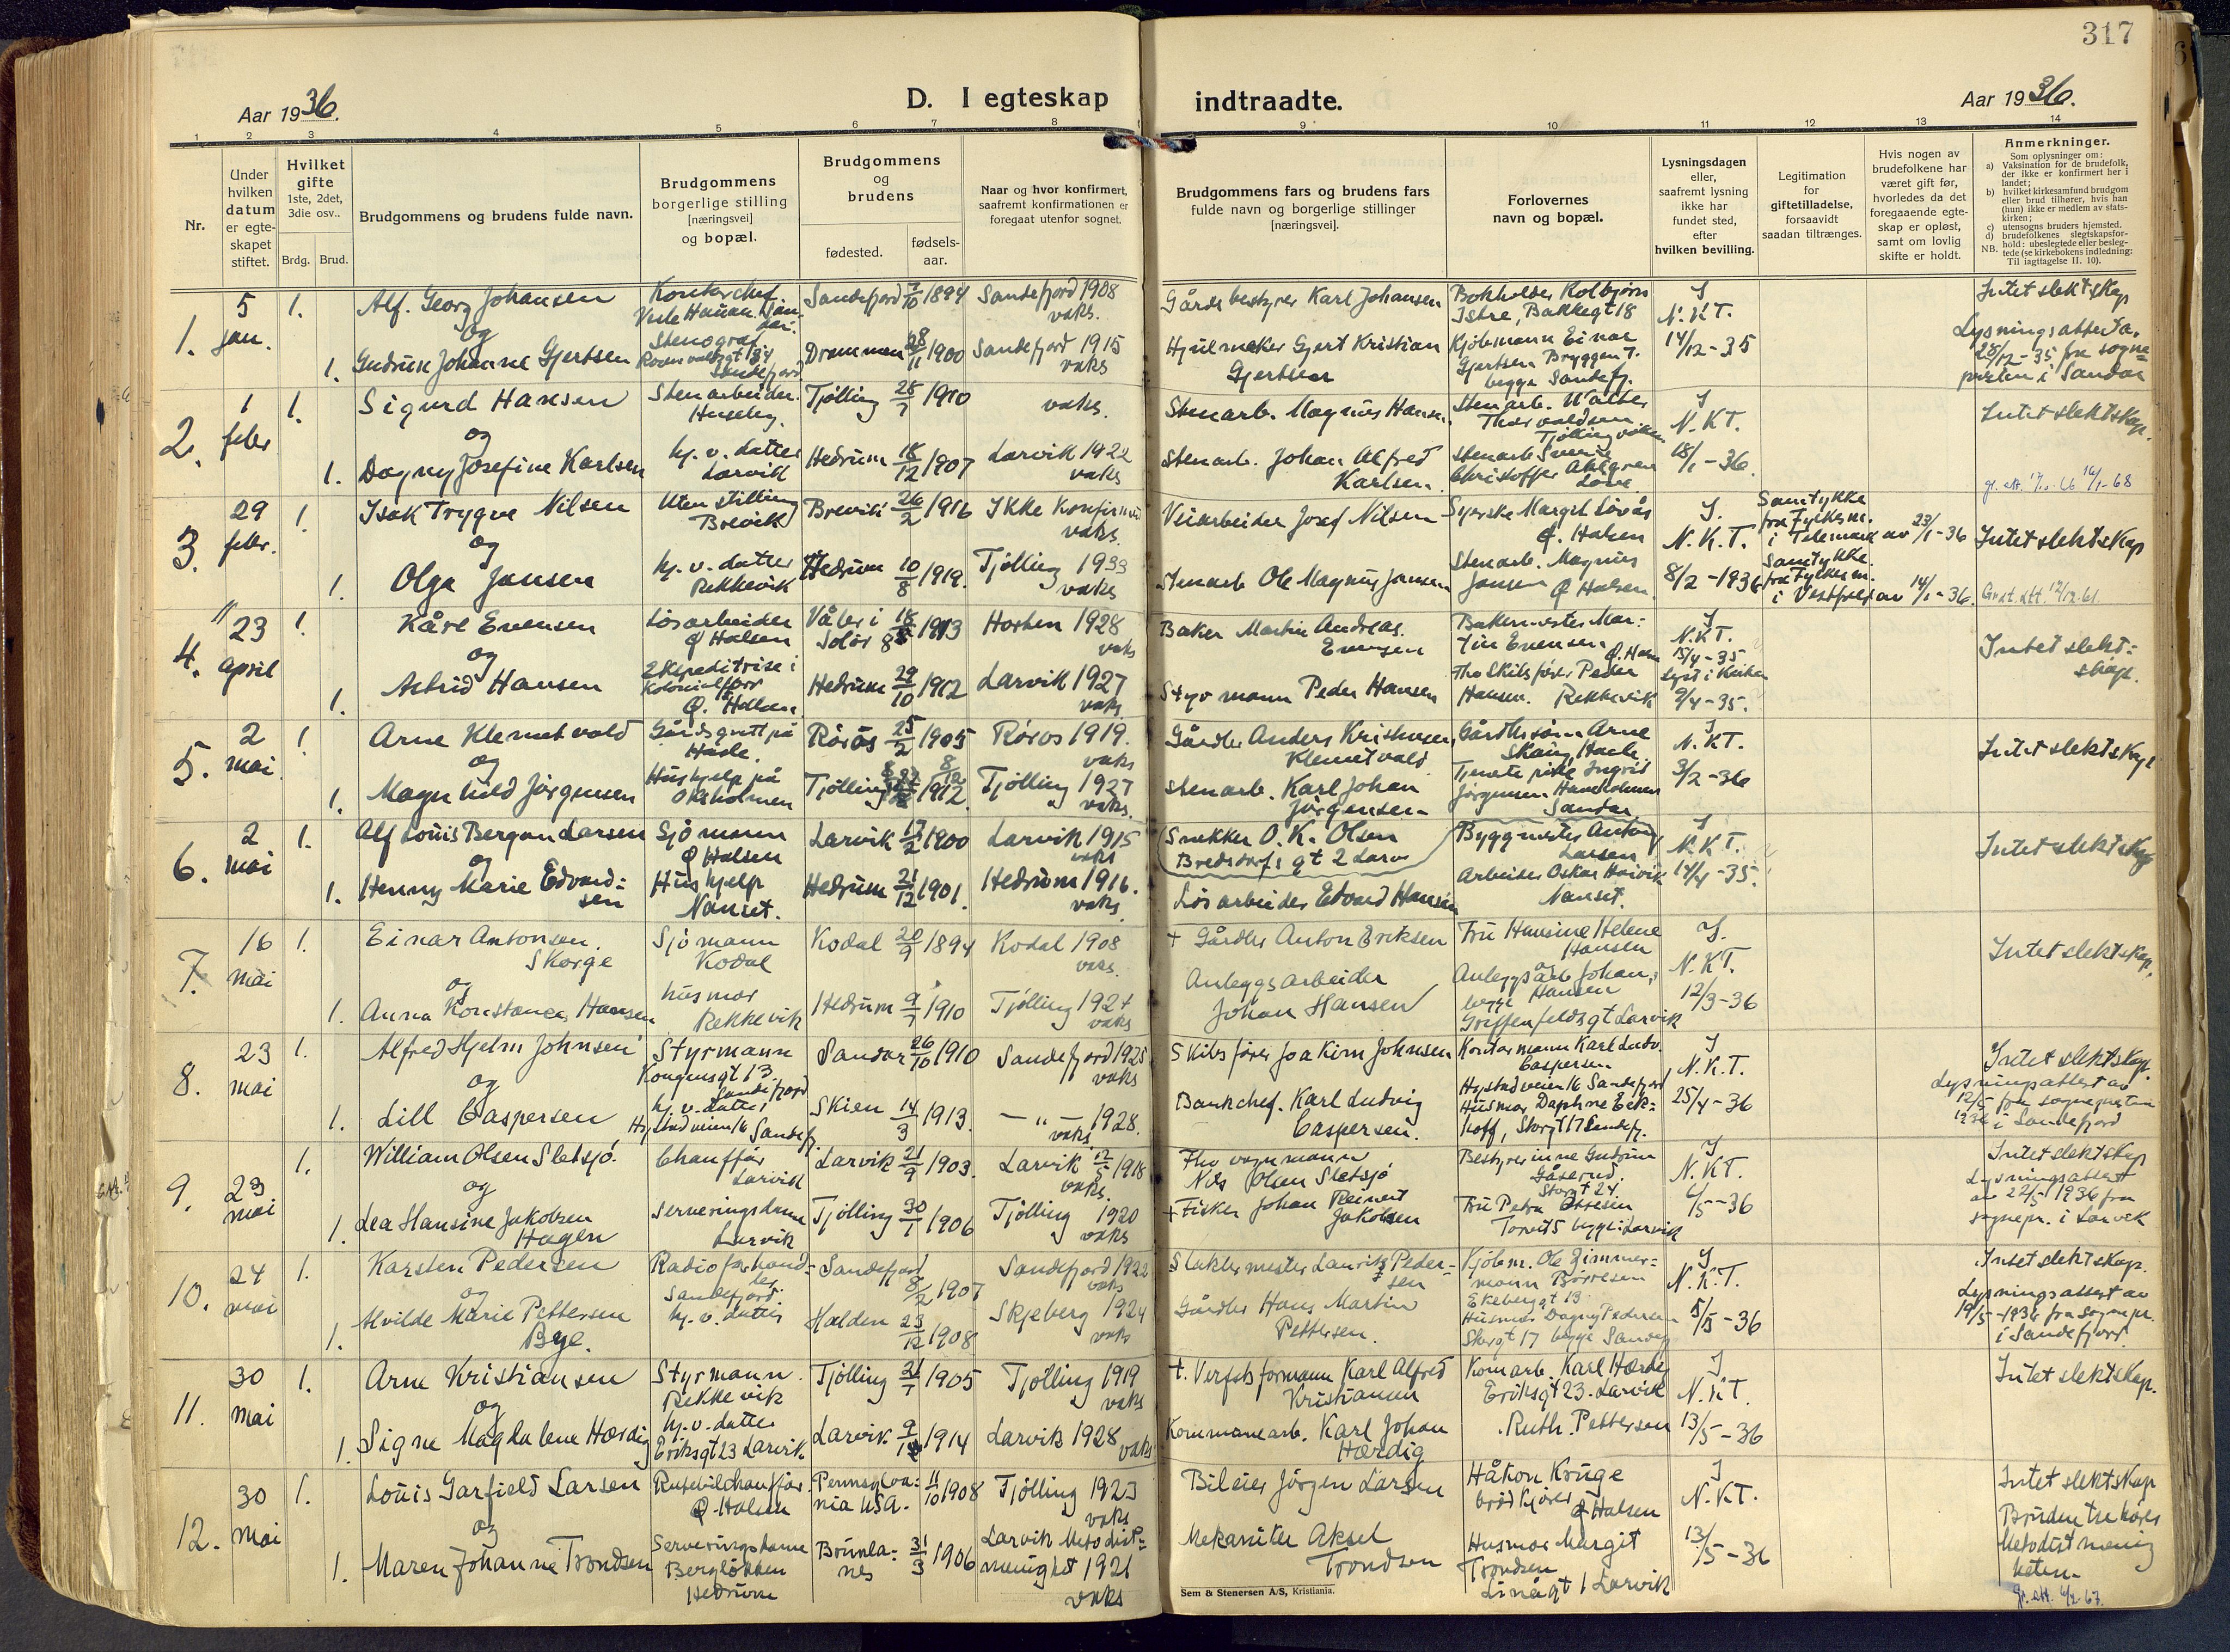 317
Aar 1936.
D. I egteskap
indtraadte.
Aar 1936.
1 2 3 4 5 6 7 8 9 10 11 12 13 14
Nr.
Under
hvilken
datum
er egte-
skapet
stiftet.
Hvilket
gifte
1ste, 2det,
3die osv..
Brdg. Brud.
Brudgommens og brudens fulde navn.
Brudgommens
borgerlige stilling
[næringsvei]
og bopæl.
Brudgommens
og
brudens
fødested.
fødsels-
aar.
Naar og hvor konfirmert,
saafremt konfirmationen er
foregaat utenfor sognet.
Brudgommens fars og brudens fars
fulde navn og borgerlige stillinger
[næringsvei].
Forlovernes
navn og bopæl.
Lysningsdagen
eller,
saafremt lysning
ikke har
fundet sted,
efter
hvilken bevilling.
Legitimation
for
giftetilladelse,
forsaavidt
saadan tiltrænges.
Hvis nogen av
brudefolkene har
været gift før,
hvorledes da det
foregaaende egte-
skap er opløst,
samt om lovlig
skifte er holdt.
Anmerkninger.
Som oplysninger om:
a) Vaksination for de brudefolk,
der ikke er konfirmert her i
landet;
b) hvilket kirkesamfund brudgom
eller brud tilhører, hvis han
(hun) ikke er medlem av stats-
kirken;
c) utensogns bruders hjemsted.
d) brudefolkenes slegtskapsfor-
hold: ubeslegtede eller besleg-
tede (se kirkebokens indledning:
NB. Til iagttagelse II. 10).
1. 5 jan. 1.
Alf. Georg Johansen
Kontorchef
Sandefjord 1894
Sandefjord 1908
vaks.
Gårdsbestyrer Karl Johansen
Bokholder Kolbjørn
Istre, Bakkegt 18
J
N.K.T.
14/12-35
Intet slektskap
Lysningsattest a.
28/12-35 fra sogne=
presten i Sandar
og
1. Gudrun Johanne Gjertsen
Stenograf
Drammen 1900
Sandefjord 1915
vaks
Hjulmaker Gjert Kristian
Gjertsen
Kjøbmann Einar
Gjertsen Bryggen 7.
begge Sandefj.
2. 1 febr 1.
Sigurd Hansen
Stenarbeider.
Huseby.
Tjølling 28/7 1910
vaks.
Stenarb. Magnus Hansen
Stenarb. Walter
Thorvaldsen
J
N.KT.
18/1-36.
Intet slektskap.
og
1. Dagny Josefine Karlsen
hj. v. datter
Larvik
Hedrum 18/12 1907
Larvik 1922
vaks
Stenarb. Johan Alfred
Karlsen
Christoffer Ahlgren
3. 29 febr. 1.
Isak Trygve Nilsen
Uten stilling
Brevik
Brevik 26/2 1916
Ikke konfirm
vaks.
Veiarbeider Josef Nilsen
Syerske Margit Lövås
Ø. Halsen
J.
N.K.T.
8/2-1936
Samtykke
fra Fylkesm.
i Telemark av 23/1-36
Intet slektskap
og
1. Olga Jansen
hj. v. datter
Rekkevik
Hedrum 10/8 1919.
Tjølling 1933
vaks
Stenarb Ole Magnus Jansen
Stenarb. Magnus
Jansen Ø Halsen
Samtykke
fra Fylkesm.
i Vestfold av 14/1-36.
4. 23 april 1.
Kåre Evensen
Løsarbeider
Ø Halsen
Våler i
Solør 1913
Horten 1928
vaks
Baker Martin Andreas
Evensen
Bakermester Mar=
tin Evensen
J
N.KT.
15/4-35
9/4-35.
Intet slekt=
skap.
og
1. Astrid Hansen
Ekspeditrise i
Ø. Halsen
Hedrum 29/10 1912
Larvik 1927
vaks
Styrmann Peder Hansen
fhv Skibsfører Peder
Hansen. Rekkevik
5. 2 mai 1.
Arne Klemetvold
Gårdsgutt på
Hasle.
Rørås 25/2 1905
Røros 1919.
vaks
Gårdbr Anders Kristensen
Klemetvold
J
N.KT.
3/2-36
Intet slektskap
og
1. Magnhild Jørgensen
Hushjelp på
Oksholmen
Tjølling 1912
Tjølling 1927
vaks.
Stenarb. Karl Johan
Jørgensen
Jørgensen
Sandar
6. 2 mai 1.
Alf Louis Bergan Larsen
Sjømann
Ø Halsen
Larvik 17/2 1900
Larvik 1915
vaks
Snekker O.K. Olsen
Bredsdorfs gt 2 Larv
Byggmester Anton
Larsen
J
N.KT.
14/4-35.
Intet slektskap
og
1. Henny Marie Edvard=
sen
Hushjelp
Nanset.
Hedrum 21/12 1901.
Hedrum 1916.
vaks
Løsarbeider Edvard Hansen
Arbeider Oskar Hasvik
Nanset.
7. 16 mai 1.
Einar Antonsen
Skorge
Sjømann
Kodal
Kodal 20/9 1894
Kodal 1908
vaks.
+ Gårdbr Anton Eriksen
Fru Hansine Helene
Hansen
J.
N.KT.
12/3-36
Intet slektskap.
og
1. Anna Konstance Hansen
husmor
Rekkevik
Hedrum 9/7 1910
Tjølling 1924
vaks
Anleggsarbeider
Johan Hansen
Anleggsarb Johan
begge Hansen
Griffenfeldsgt Larvik
8. 23 mai 1.
Alfred Hjelm Johnsen
Styrmann
Kongensgt 13
Sandefjord
Sandar 26/10 1910
Sandefjord 1925
vaks
Skibsfører Joakim Johnsen
Kontormann Karl Ludv.
Caspersen
Hystadveien 16 Sandefjord
J
N.K.T.
25/4-36
Intet slektskap.
Lysningsattest av
12/5 fra sognepresten
1936 i Sandefjord
og
1. Lill Caspersen
hj. v. datter
Hystadveien 16 Sandefj.
Skien 14/3 1913.
— " — 1928.
vaks.
Bankchef. Karl Ludvig
Caspersen.
Husmor Daphne Eck=
hoff, Storgt 17 Sandefj.
9. 23 mai 1.
William Olsen Sletsjø
Chauffør
Larvik
Larvik 21/9 1903.
Larvik 12/5 1918
vaks.
Fhv vognmann
Nils Olsen Sletsjø
Bestyrerinne Gudrun
Gåserud.
Storgt 24.
J
N.KT.
6/5-36
Intet slektskap
Lysningsattest
av 22/5 1936 fra
sognepr. i Larvik
og
1. Lea Hansine Jakobsen
Hagen
Serveringsdame
Larvik
Tjølling 30/7 1906
Tjølling 1920
vaks
+ Fisker Johan Reinert
Jakobsen
Fru Petra
Torvet 5 begge: Larvik
10. 24 mai 1.
Karsten Pedersen
Radioforhand=
ler
Sandefjord.
Sandefjord
8/2 1907
Sandefjord 1922
vaks
Slaktermester Lauritz Peder=
sen
Kjøbm. Ole Zimmer=
mann Børresen
Ekebergt 13
J
N.K.T.
5/5-36
Intet slektskap.
Lysningsattest av
19/5-1936 fra sognepr.
i Sandefjord
og
1. Alvilde Marie Pettersen
Bye.
hj. v. datter
Halden 23/12 1908
Skjeberg 1924
vaks
Gårdbr Hans Martin
Pettersen.
Husmor Dagny Pedersen
Storgt 17 begge Sandefj
11. 30 mai 1.
Arne Kristiansen
Styrmann.
Rekkevik
Tjølling 31/7 1905
Tjølling 1919
vaks
+. Verfsts formann Karl Alfred
Kristiansen
Komarb. Karl Hærdig
Eriksgt 23. Larvik
J
N.KT.
13/5-36
Intet slektskap.
og
1. Signe Magdalene Hærdig
hj. v. datter
Eriksgt 23 Larvik
Larvik 1914
Larvik 1928
vaks
Kommunearb. Karl Johan
Hærdig
Ruth Pettersen
12. 30 mai 1.
Louis Garfield Larsen
Rutebilchauffør.
Ø. Halsen
Pennsylva=
nia USA. 11/10 1908
Tjølling 1923
vaks
Bileier Jørgen Larsen
Håkon Kruge
brødkjører Ø Halsen
J
N.KT.
13/5-36
Intet slektskap
Bruden tilhører
Metodistmenig
heten
og
1. Maren Johanne Trondsen
Serveringsdame
Bergløkken
Hedrum
Brunla=
nes 31/3 1906
Larvik Metodist=
menighet 1921
vaks
Mekaniker Aksel
Trondsen
Husmor Margit
Trondsen
Linågt 1 Larvik
Sem & Stenersen A/S, Kristiania.